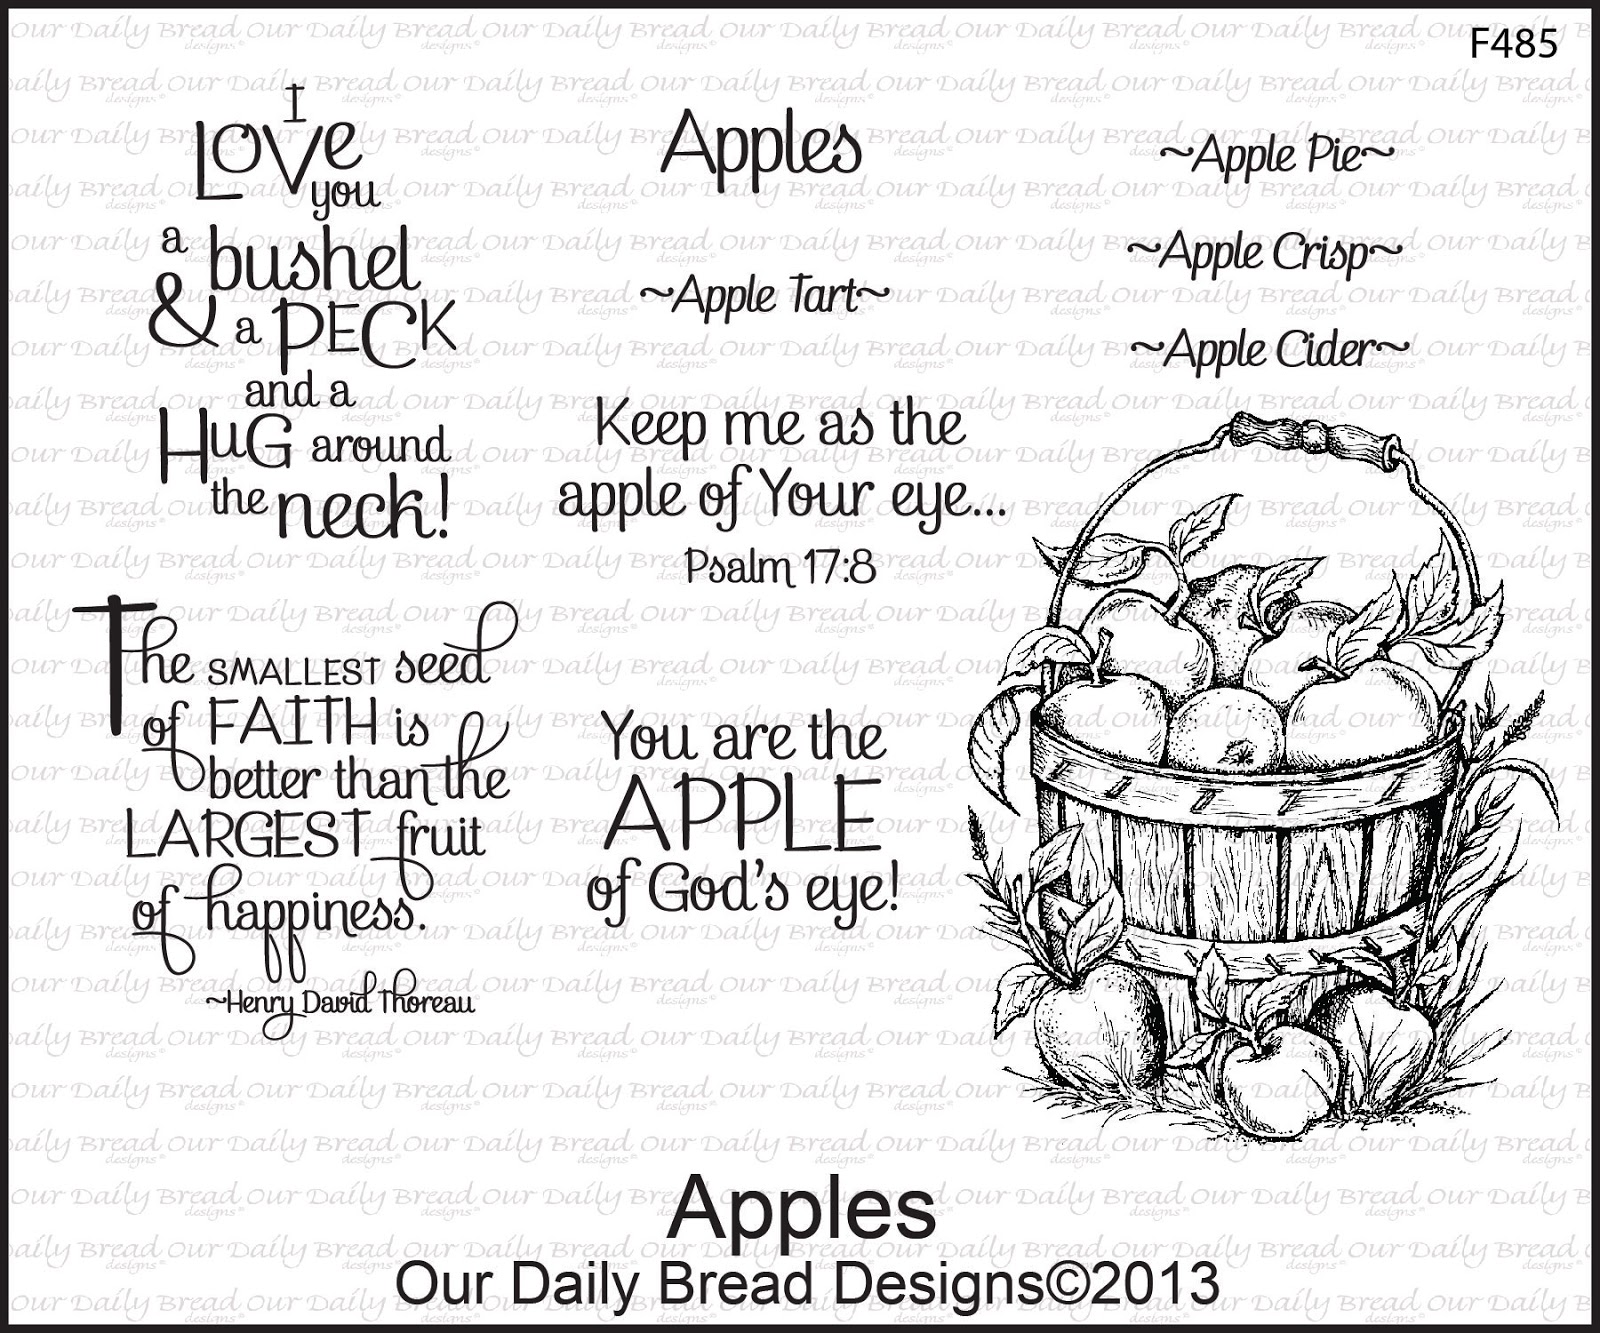 F485
I
Love
you
a bushel
& a PECK
and a
HuG around
the neck!
Apples
~Apple Tart~
~Apple Pie~
~Apple Crisp~
~Apple Cider~
Keep me as the
apple of Your eye...
Psalm 17:8
The SMALLEST seed
of FAITH is
better than the
LARGEST fruit
of happiness.
~Henry David Thoreau
You are the
APPLE
of God's eye!
Apples
Our Daily Bread Designs©2013
Our Daily Bread
designs©